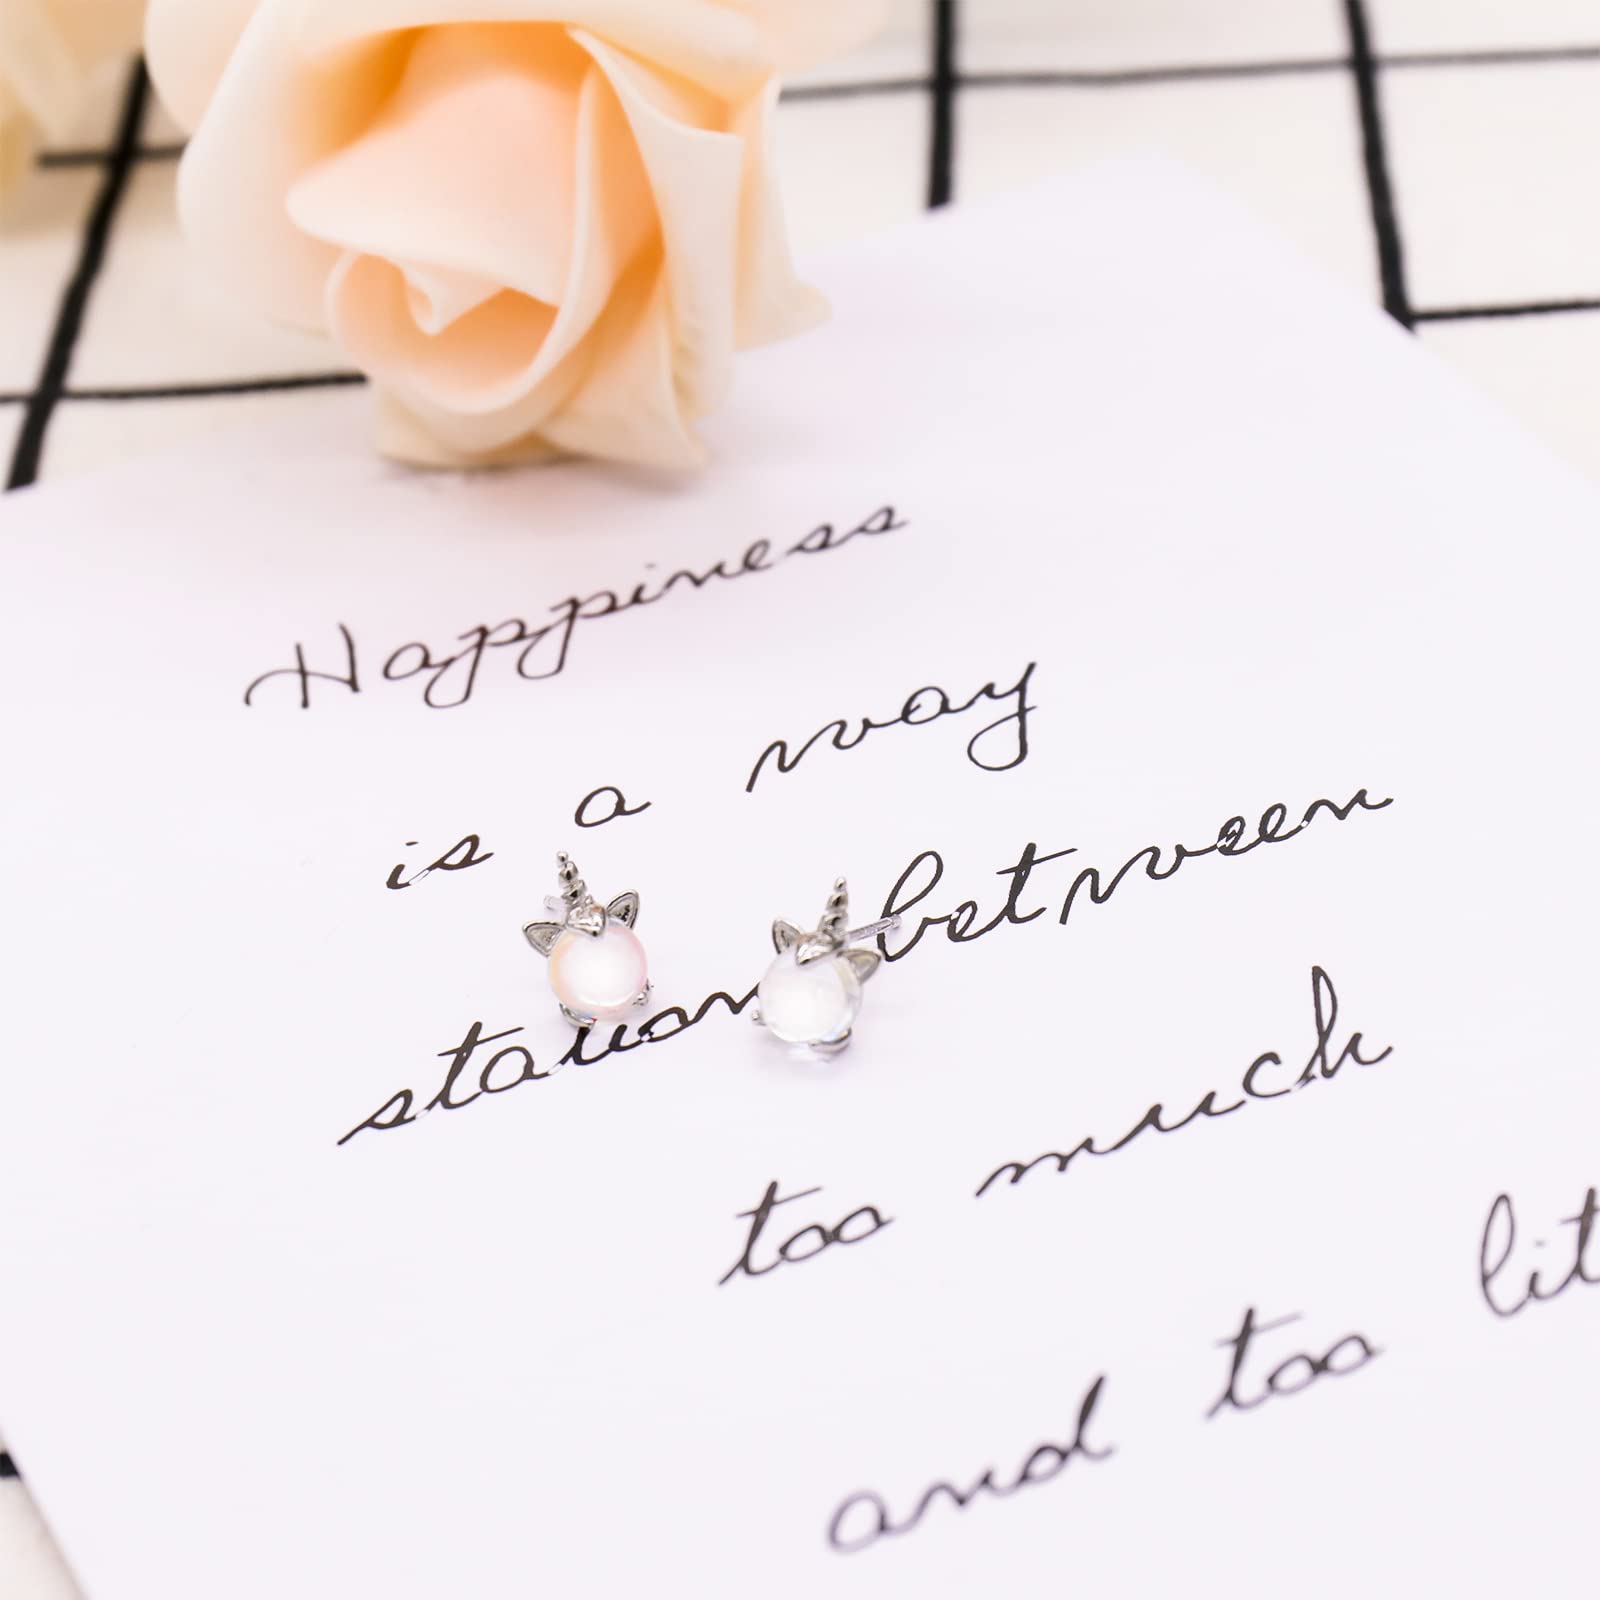 Happiness
is a way
station between
too much
and too lit